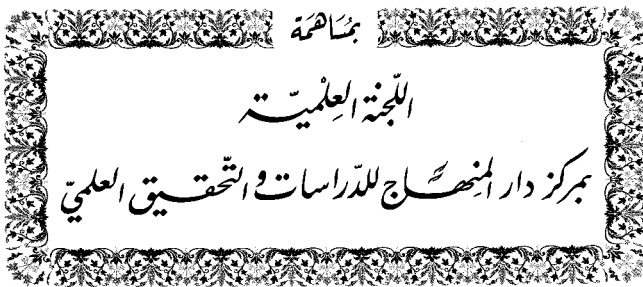 بمُسَاهَمَة
اللّجنة العِلْميّة
بمركز دار المنهاج للدّراسات والتّحقيق العلميّ